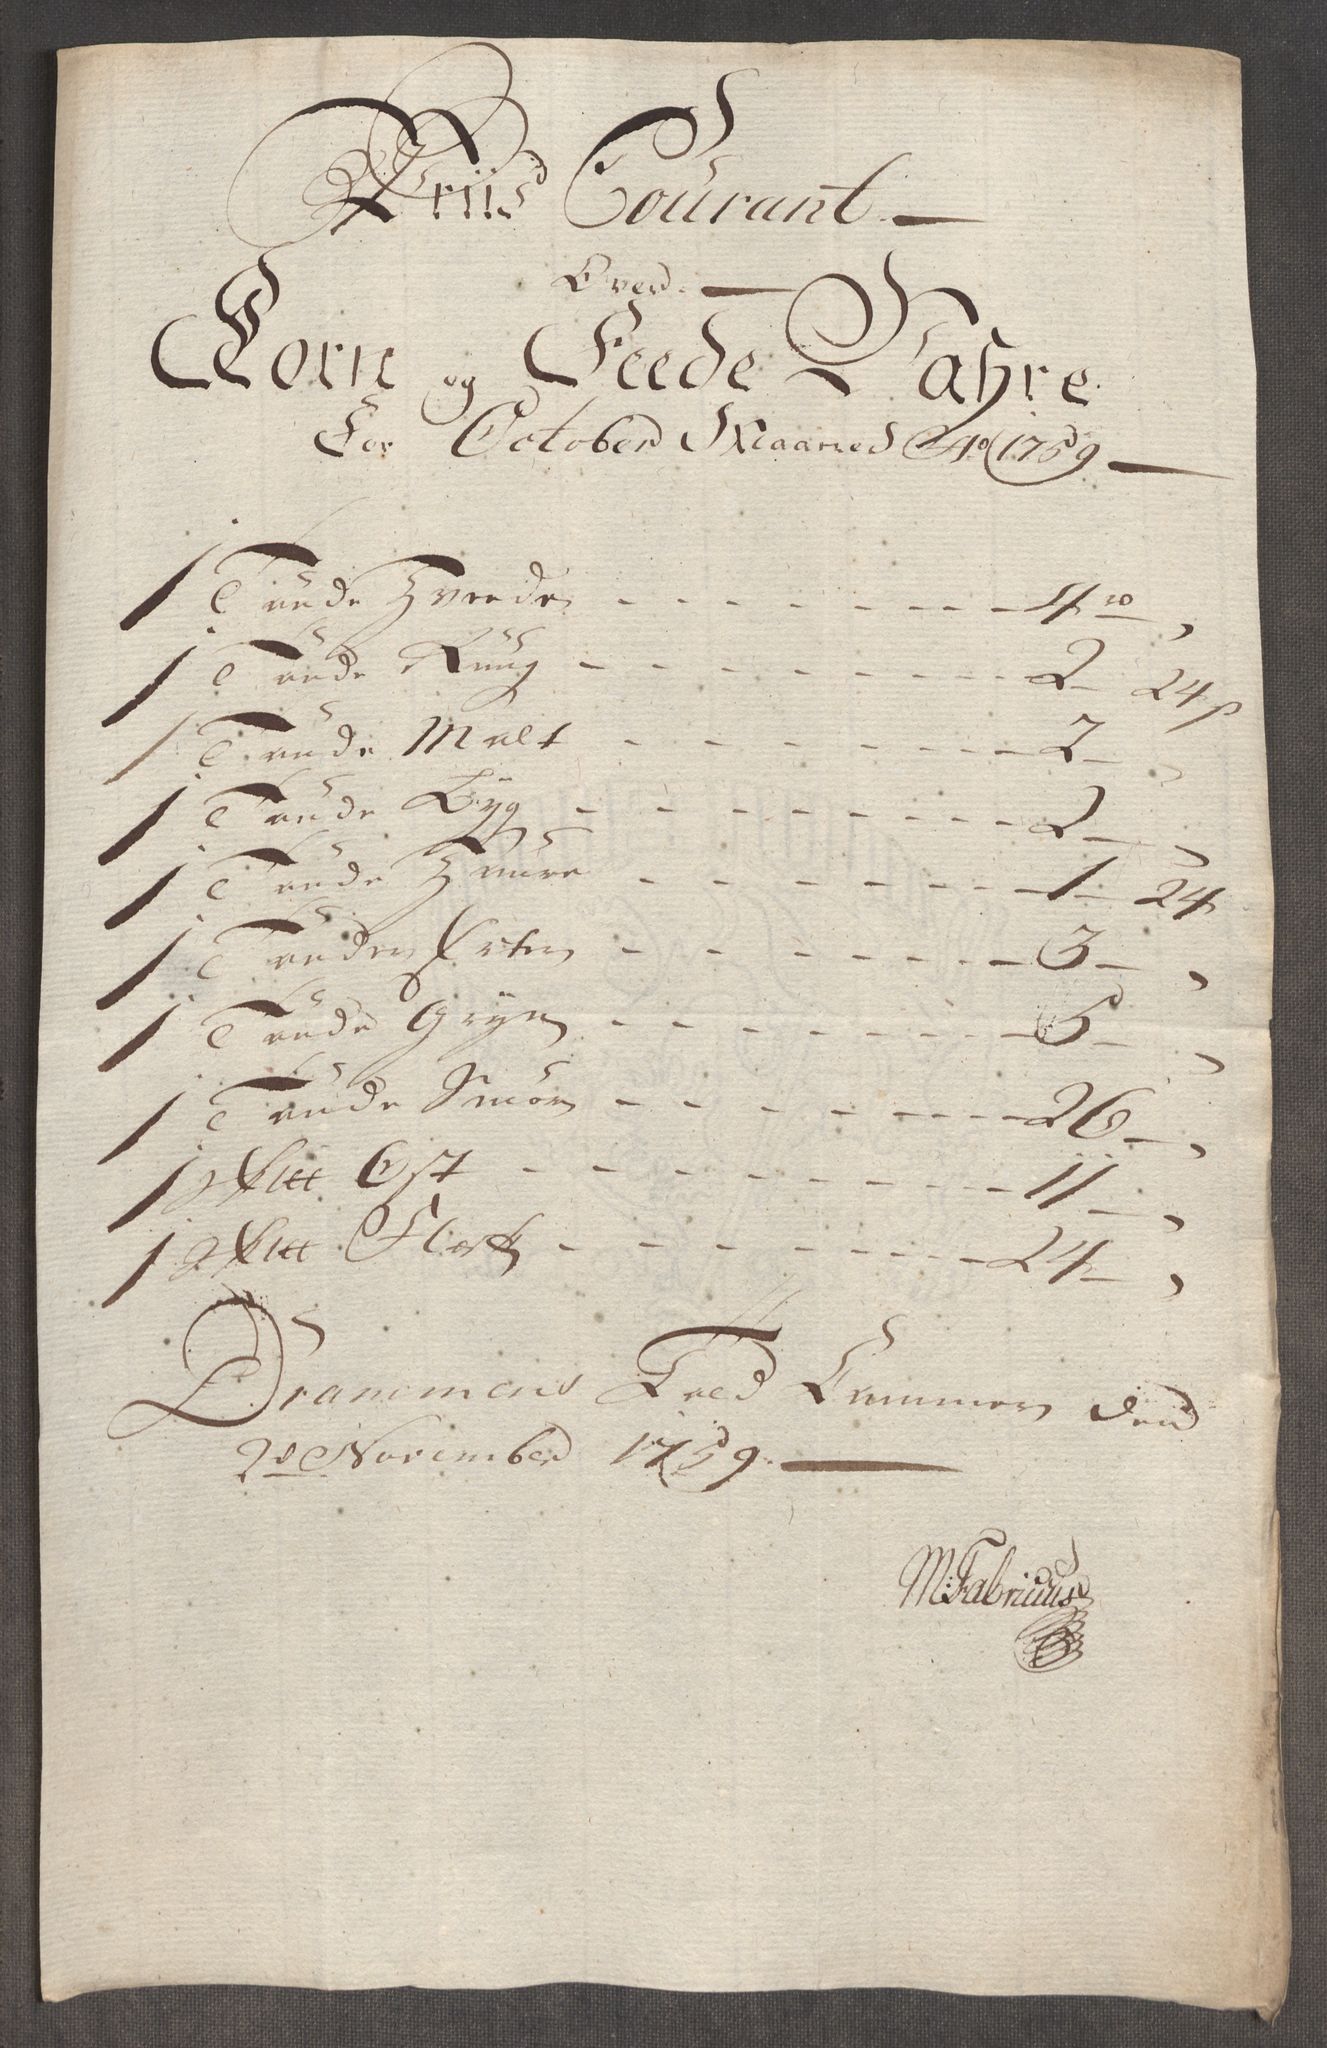 Priis Courant
Over
Corn og Feede Vahre
For October Maaned Ao 1759
1 Tønde Hvede - - - - - - 4 rd ,
1 Tønde Rüug - - - - - - 2 - 24 s
1 Tønde Malt - - - - - - 2 - ,
1 Tønde Byg - - - - - - 2 - ,
1 Tønde Haure - - - - - - 1 - 24
1 Tønde Erter - - - - - - 3 - ,
1 Tønde Gryn - - - - - - 6 - ,
1 Tønde Smör - - - - - - 26 - ,
1 Ost - - - - - - 11 - ,
1 Flesk - - - - - - 24 - ,
Drammens Told Cammer den
2de November 1759.
M: Fabricius